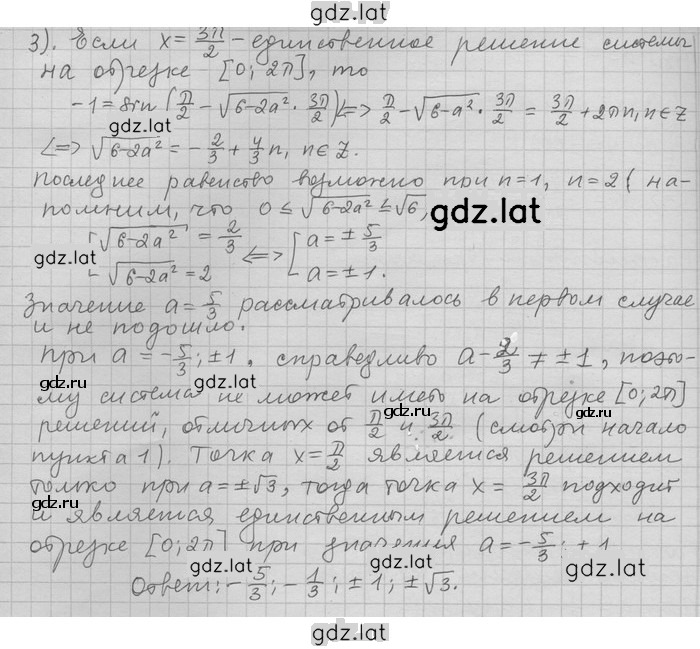 gdz.lat
3). Если x = 3π/2 - единственное решение системы
на отрезке [0; 2π], то
-1 = sin(π/2 - √(6-2a²) · 3π/2) <=> π/2 - √(6-a²) · 3π/2 = 3π/2 + 2πn, n∈Z
gdz.lat gdz.lat
<=> √(6-2a²) = -2/3 + 4/3 n, n∈Z.
последнее равенство возможно при n=1, n=2 (на-
помним, что 0 ≤ √(6-2a²) ≤ √6),
gdz.lat
[√(6-2a²) = 2/3 <=> [a = ± 5/3
gdz.lat
√(6-2a²) = 2 a = ± 1.
Значение a = 5/3 рассматривалось в первом случае
и не подошло.
gdz.lat
при a = -5/3; ±1. справедливо a - 2/3 ≠ ±1, поэто-
gdz.lat
му система не может иметь на отрезке [0; 2π]
решений, отличных от π/2 и 3π/2 (смотри начало
gdz.lat
пункта 1). Точка x = π/2 является решением
gdz.lat
только при a = ±√3, тогда точка x = 3π/2 подходит
и является единственным решением на
gdz.lat
отрезке [0; 2π] при значения a = -5/3; +1
gdz.lat
Ответ: -5/3; -1/3; ±1; ±√3.
gdz.lat
gdz.lat